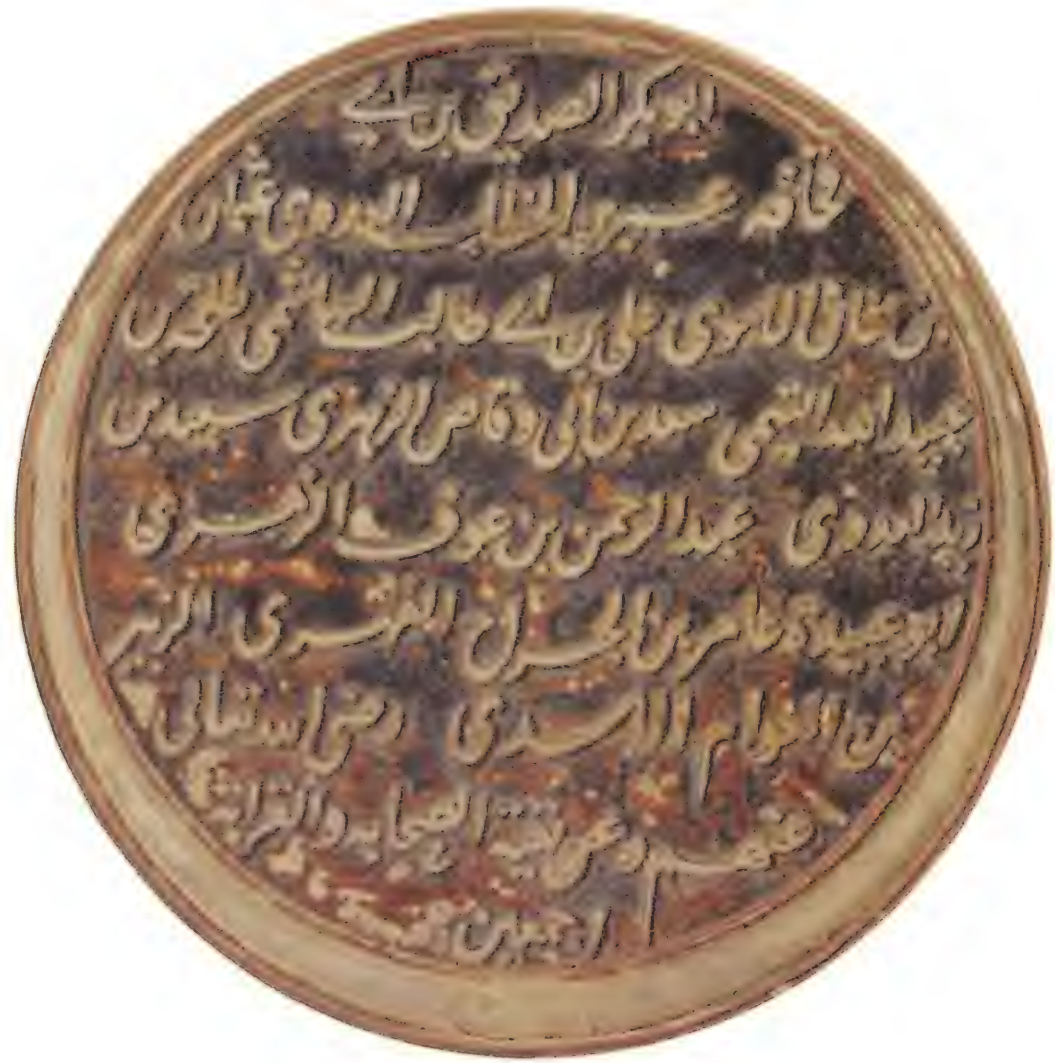 ابوبكر الصديق بن ابے
قحافه عمر بن الخطاب العدوى عثمان
بن عفان الاموى على بن ابے طالب الهاشمى طلحه بن
عبيد الله التيمى سعد بن ابى وقاص الزهرى سعيد بن
زيد العدوى عبد الرحمن بن عوف الزهرى
ابو عبيدة عامر بن الجراح الفهرى الزبير
بن العوام الاسدى رضى الله تعالى
عنهم و عن بقية الصحابه والقرابة
اجمعين